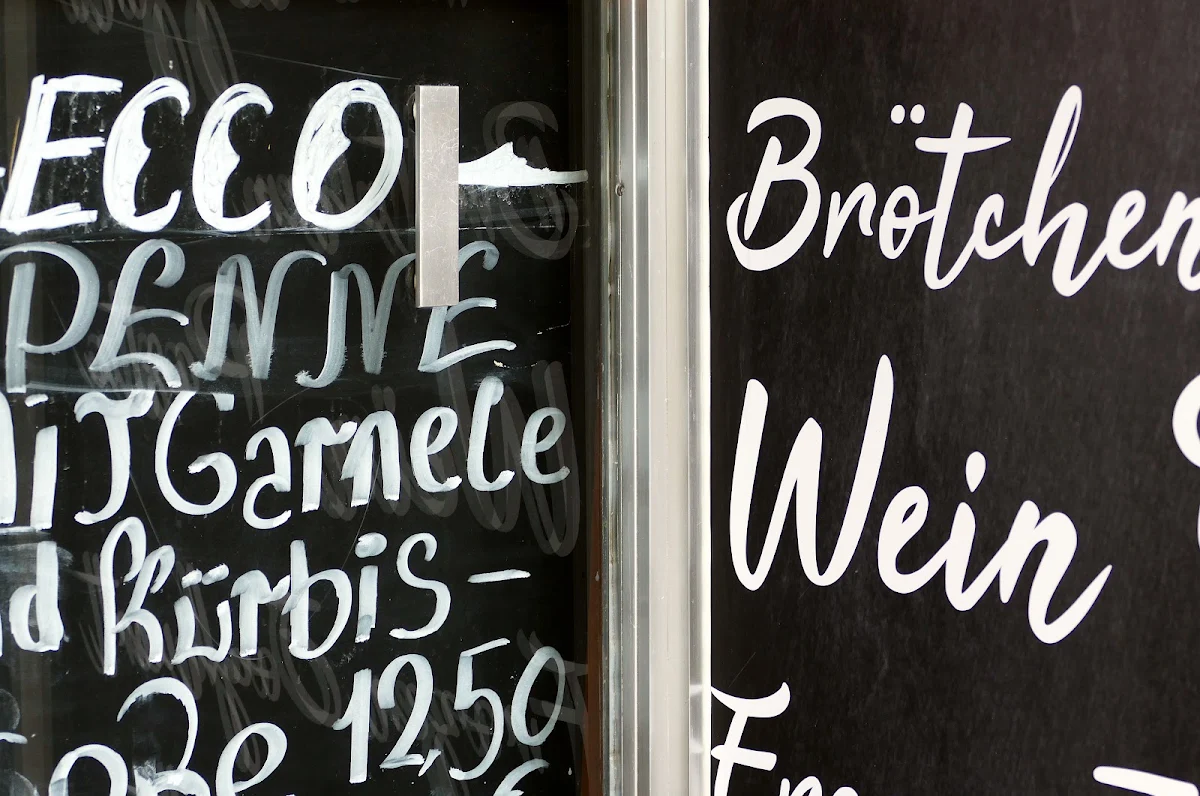 ECCO
PENNE
MiT Garnele
nd Kürbis-
oße 12,50
€
Brötchen
Wein